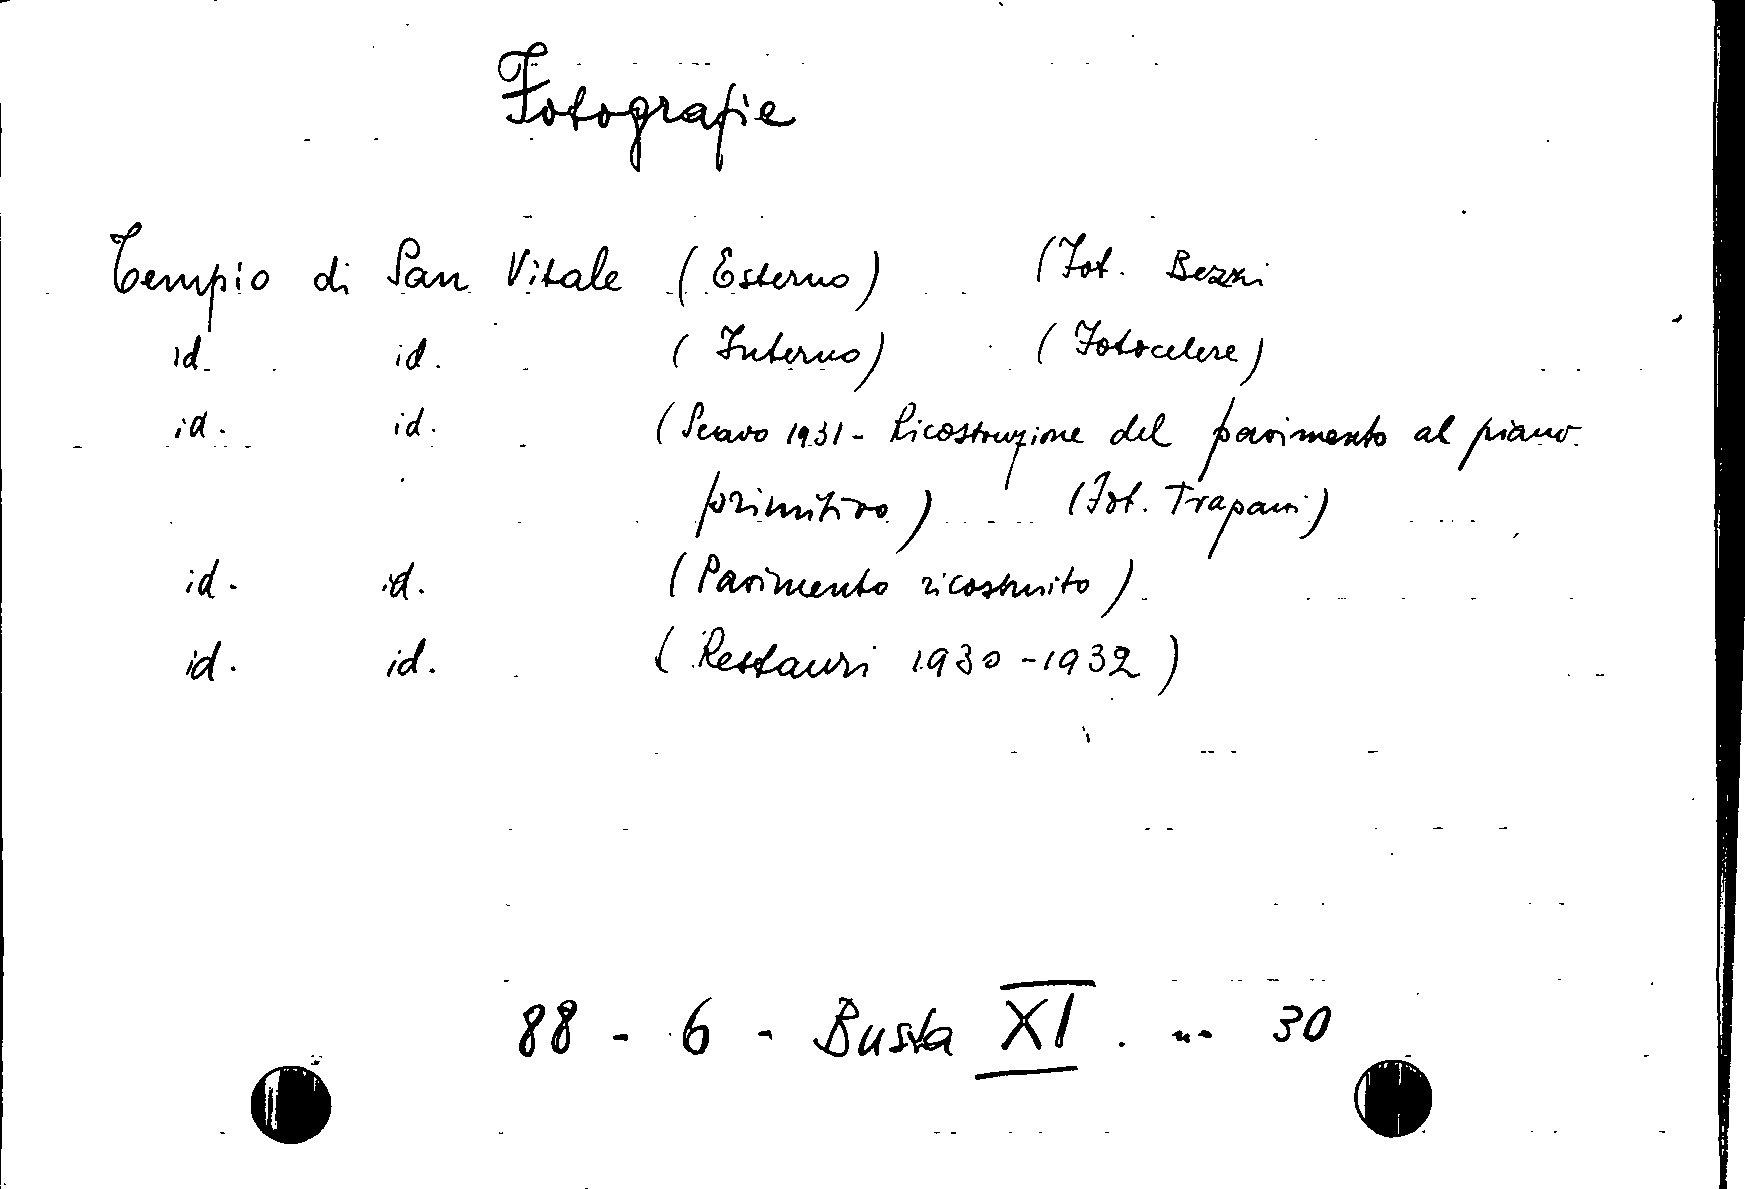 Fotografie
Tempio di San Vitale (Esterno) (Fot. Bezzi
id. id. (Interno) (Fotocelere)
id. id. (Scavo 1931 - Ricostruzione del pavimento al piano
primitivo) (Fot. Trapani)
id. id. (Pavimento ricostruito)
id. id. (Restauri 1930-1932)
88 - 6 - Busta XI. n. 30